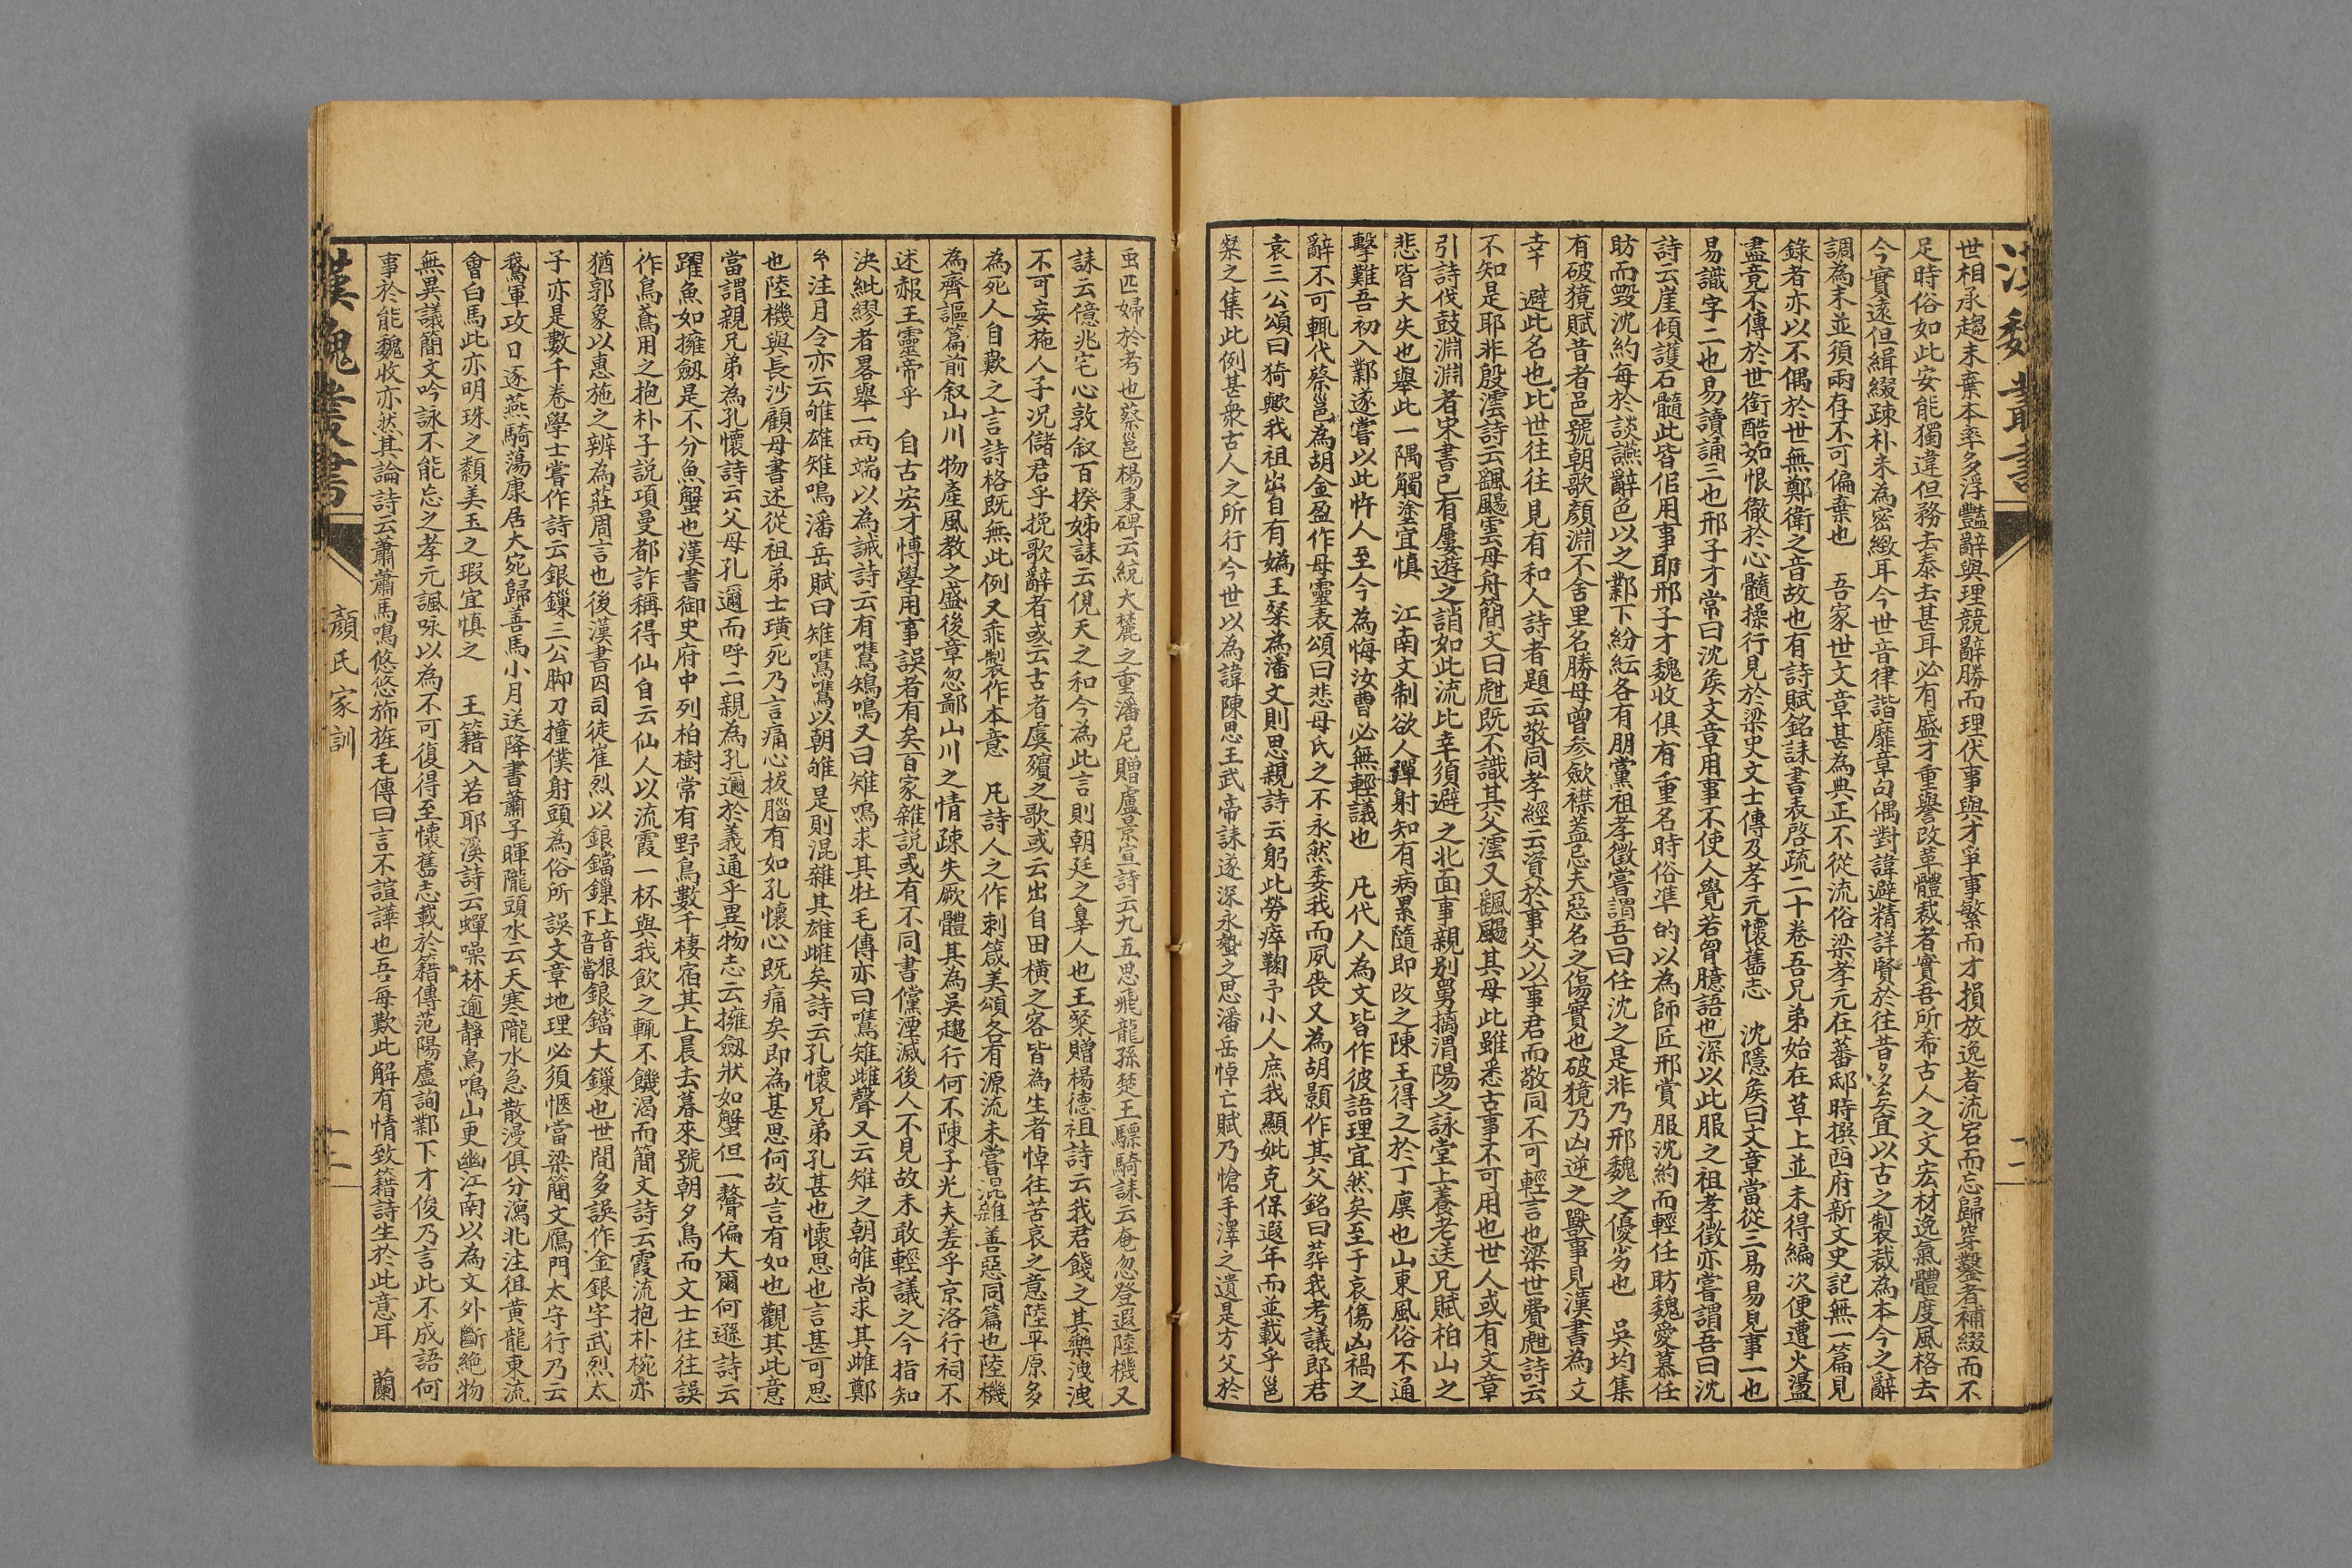 漢魏叢書
世相承趨末棄本率多浮豔辭與理競辭勝而理伏事與才爭事繁而才損放逸者流宕而忘歸穿鑿者補綴而不
足時俗如此安能獨違但務去泰去甚耳必有盛才重譽改革體裁者實吾所希古人之文宏材逸氣體度風格去
今實遠但緝綴疎朴未為密緻耳今世音律諧靡章句偶對諱避精詳賢於往昔多矣宜以古之製裁為本今之辭
調為末並須兩存不可偏棄也　吾家世文章甚為典正不從流俗梁孝元在蕃邸時撰西府新文史記無一篇見
錄者亦以不偶於世無鄭衛之音故也有詩賦銘誄書表啓疏二十卷吾兄弟始在草土並未得編次便遭火盪
盡竟不傳於世銜酷茹恨徹於心髓操行見於梁史文士傳及孝元懷舊志　沈隱矦曰文章當從三易易見事一也
易識字二也易讀誦三也邢子才常曰沈矦文章用事不使人覺若胷臆語也深以此服之祖孝徵亦嘗謂吾曰沈
詩云崖傾護石髓此皆佀用事耶邢子才魏收俱有重名時俗準的以為師匠邢賞服沈約而輕任昉魏愛慕任
昉而毀沈約每於談讌辭色以之鄴下紛紜各有朋黨祖孝徵嘗謂吾曰任沈之是非乃邢魏之優劣也　吳均集
有破獍賦昔者邑號朝歌顏淵不舍里名勝母曾參歛襟葢忌夫惡名之傷實也破獍乃凶逆之獸事見漢書為文
幸　避此名也比世往往見有和人詩者題云敬同孝經云資於事父以事君而敬同不可輕言也梁世費甝詩云
不知是耶非殷澐詩云颻颺雲母舟簡文曰甝既不識其父澐又颻颺其母此雖悉古事不可用也世人或有文章
引詩伐鼓淵淵者宋書已有屢遊之誚如此流比幸須避　之北面事親别舅摛渭陽之詠堂上養老送兄賦桓山之
悲皆大失也舉此一隅觸塗宜慎　江南文制欲人彈射知有病累隨即改之陳王得之於丁廙也山東風俗不通
擊難吾初入鄴遂嘗以此忤人至今為悔汝曹必無輕議也　凡代人為文皆作彼語理宜然矣至于哀傷凶禍之
辭不可輒代蔡邕為胡金盈作母靈表頌曰悲母氏之不永然委我而夙喪又為胡顥作其父銘曰葬我考議郎君
袁三公頌曰猗歟我祖出自有媯王粲為潘文則思親詩云躬此勞瘁鞠予小人庶我顯妣克保遐年而並載乎邕
粲之集此例甚衆古人之所行今世以為諱陳思王武帝誄遂深永蟄之思潘岳悼亡賦乃愴手澤之遺是方父於
虫匹婦於考也蔡邕楊秉碑云統大麓之重潘尼贈盧景宣詩云九五思飛龍孫楚王驃騎誄云奄忽登遐陸機父
誄云億兆宅心敦叙百揆姊誄云俔天之和今為此言則朝廷之辠人也王粲贈楊德祖詩云我君餞之其樂洩洩
不可妄施人子况儲君乎挽歌辭者或云古者虞殯之歌或云出自田横之客皆為生者悼往苦哀之意陸平原多
為死人自歎之言詩格既無此例又乖製作本意　凡詩人之作刺箴美頌各有源流未嘗混雜善惡同篇也陸機
為齊謳篇前叙山川物產風教之盛後章忽鄙山川之情疎失厥體其為吳趨行何不陳子光夫差乎京洛行祠不
述赧王靈帝乎　自古宏才博學用事誤者有矣百家雜説或有不同書儻湮滅後人不見故未敢輕議之今指知
決紕繆者畧舉一兩端以為誡詩云有鷕鴙鳴又曰雉鳴求其牡毛傳亦曰鷕雉雌聲又云雉之朝雊尚求其雌鄭
𤣥注月令亦云雊雄雉鳴潘岳賦曰雉鷕鷕以朝雊是則混雜其雄雌矣詩云孔懷兄弟孔甚也懷思也言甚可思
也陸機與長沙顧母書述從祖弟士璜死乃言痛心拔腦有如孔懷心既痛矣即為甚思何故言有如也觀其此意
當謂親兄弟為孔懷詩云父母孔邇而呼二親為孔邇於義通乎異物志云擁劔狀如蟹但一螯偏大爾何遜詩云
躍魚如擁劔是不分魚蟹也漢書御史府中列柏樹常有野鳥數千棲宿其上晨去暮來號朝夕鳥而文士往往誤
作鳥鳶用之抱朴子説項曼都詐稱得仙自云仙人以流霞一杯與我飲之輒不饑渴而簡文詩云霞流抱朴椀亦
猶郭象以惠施之辨為莊周言也後漢書囚司徒崔烈以鋃鐺鏁上音狼下音當鋃鐺大鏁也世間多誤作金銀字武烈太
子亦是數千卷學士嘗作詩云銀鏁三公脚刀撞僕射頭為俗所誤文章地理必須愜當梁簡文鴈門太守行乃云
鵞軍攻日逐燕騎蕩康居大宛歸善馬小月送降書蕭子暉隴頭水云天寒隴水急散漫俱分瀉北注徂黄龍東流
會白馬此亦明珠之纇美玉之瑕宜慎之　王籍入若耶溪詩云蟬噪林逾靜鳥鳴山更幽江南以為文外斷絶物
無異議簡文吟詠不能忘之孝元諷咏以為不可復得至懷舊志載於籍傳范陽盧詢鄴下才俊乃言此不成語何
事於能魏收亦然其論詩云蕭蕭馬鳴悠悠斾旌毛傳曰言不諠譁也吾每歎此解有情致籍詩生於此意耳　蘭
漢魏叢書　顏氏家訓